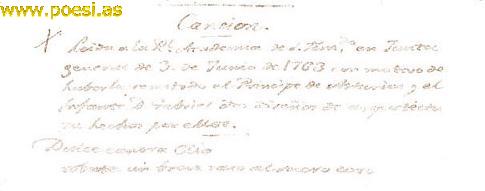 www.poesi.as
Cancion.
Leida a la Rl. Academia de S. Fern.do en Junta
general de 3. de Junio de 1763 con motivo de
haberla remitido el Principe de Asturias y el
Infante D. Gabriel dos diseños de arquitectura
hechos por ellos.
Dulce canora Clio
robate un breve rato al sacro coro